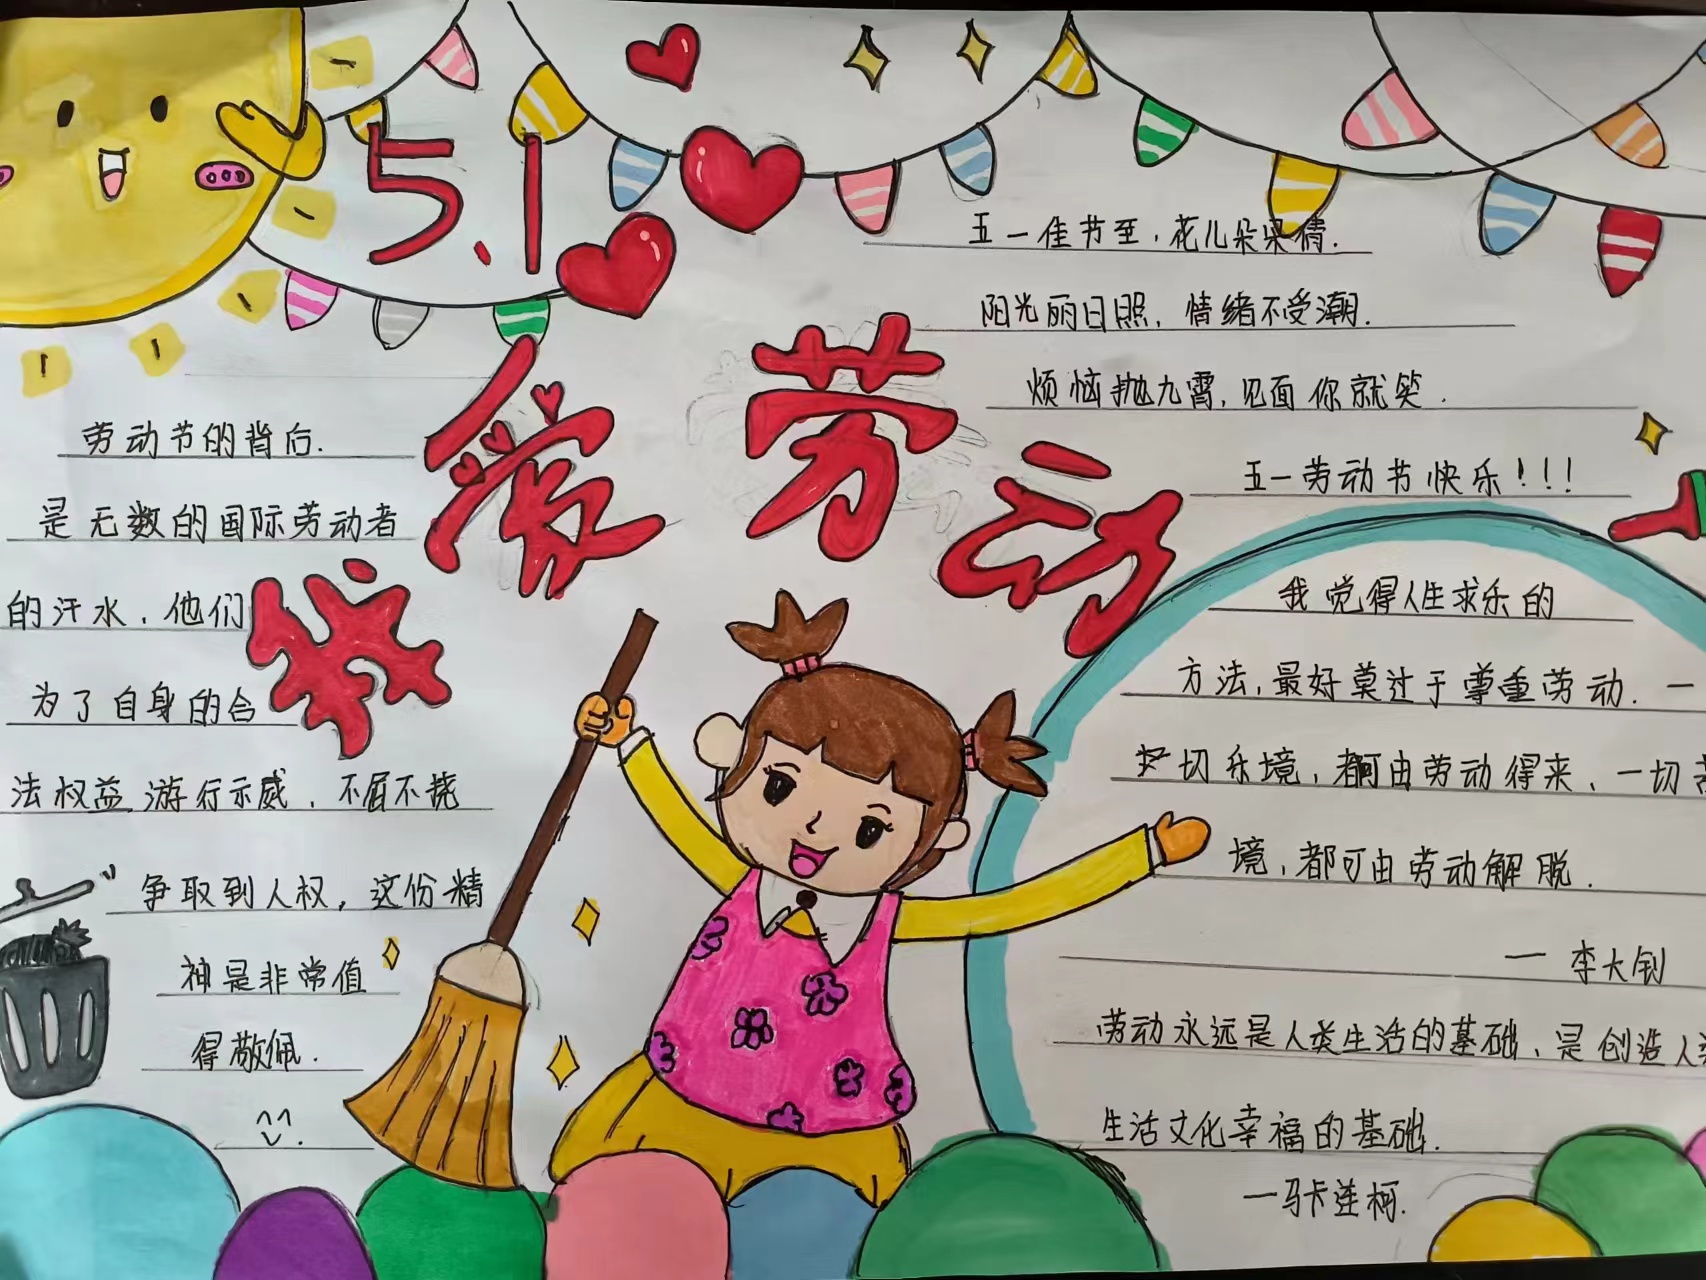 5.1
我爱劳动
劳动节的背后.
是无数的国际劳动者
的汗水，他们
为了自身的合
法权益游行示威，不屈不挠
争取到人权，这份精
神是非常值
得敬佩.
五一佳节至，花儿朵朵倩.
阳光丽日照，情绪不受潮.
烦恼抛九霄，见面你就笑.
五一劳动节快乐！！！
我觉得人生求乐的
方法，最好莫过于尊重劳动. 一
切乐境，都可由劳动得来、一切苦
境，都可由劳动解脱.
— 李大钊
劳动永远是人类生活的基础、是创造人类
生活文化幸福的基础.
—马卡连柯.